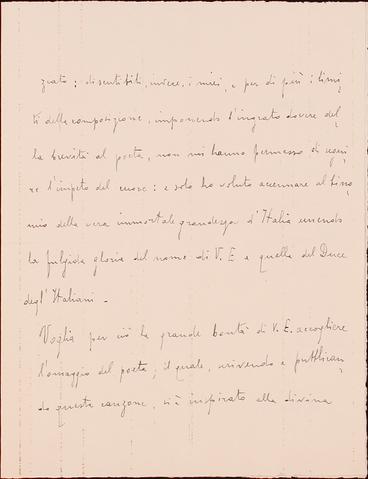 ziato; disentibili, invece, i miei, e per di più i limi-
ti della composizione, imponendo l'ingrato dovere del-
la brevità al poeta, non mi hanno permesso di segui-
re l'impeto del cuore: e solo ho voluto accennare al bino-
mio della vera immortale grandezza d'Italia unendo
la fulgida gloria del nome di V. E. a quella del Duce
degl'Italiani -
Voglia per ciò la grande bontà di V. E. accogliere
l'omaggio del poeta, il quale, scrivendo e pubblican-
do questa canzone, si è inspirato alla divina